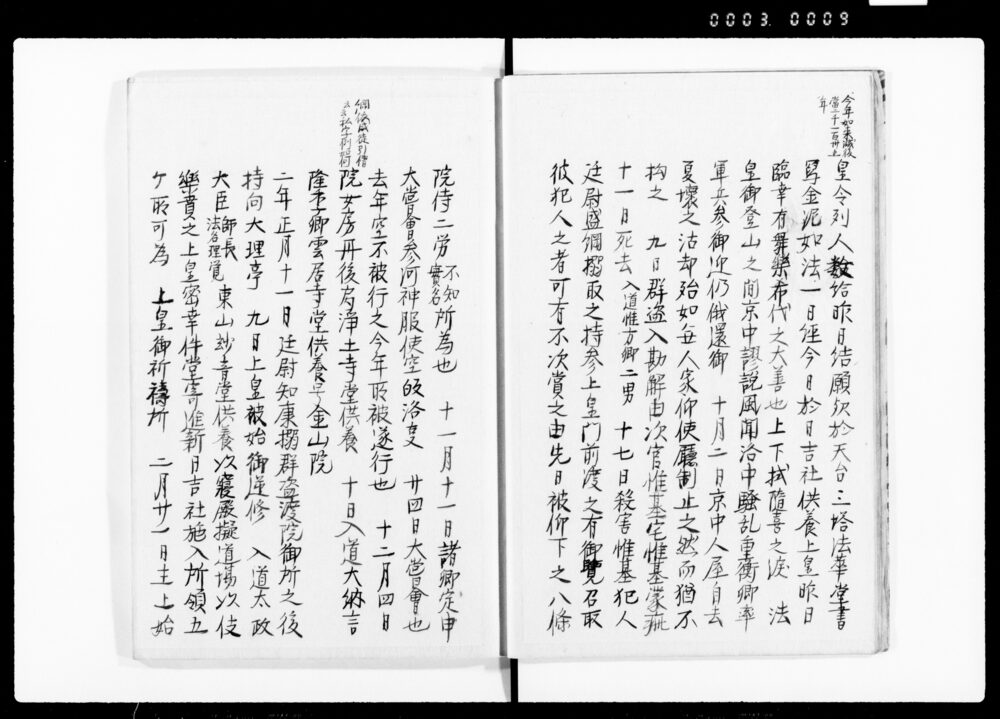 0003 0009
今年如来滅後
当二千一百卅上
年
皇令列人数給昨日結願於於天台三塔法華堂書
写金泥如法一日経今日於日吉社供養上皇昨日
臨幸有舞楽希代之大善也上下拭随喜之涙　法
皇御登山之間京中謬説風聞洛中騒乱重衡卿率
軍兵参御迎仍俄還御　十月二日京中人屋自去
夏壊之沽却殆如毎人家仰使庁制止之然而猶不
拘之　九日群盗入勘解由次官惟基宅惟基蒙疵
十一日死去入道惟方卿二男　十七日殺害惟基犯人
廷尉盛綱搦取之持参上皇門前渡之有御覧召取
彼犯人之者可有不次賞之由先日被仰下之八條
院侍二労不知実名所為也　十一月十一日諸卿定申
大嘗會参河神服使空皈洛事　廿四日大嘗會也
去年空不被行之今年所被遂行也　十二月四日
院女房丹後局浄土寺堂供養　十日入道大納言
隆季卿雲居寺堂供養号金山院
二年正月十一日廷尉知康搦群盗渡院御所之後
持向大理亭　九日上皇被始御逆修　入道太政
大臣師長法名理覚東山妙音堂供養以寝殿擬道場以伎
楽賁之上皇密幸件堂寄進新日吉社施入所領五
ケ所可為　上皇御祈祷所　二月廿一日主上始